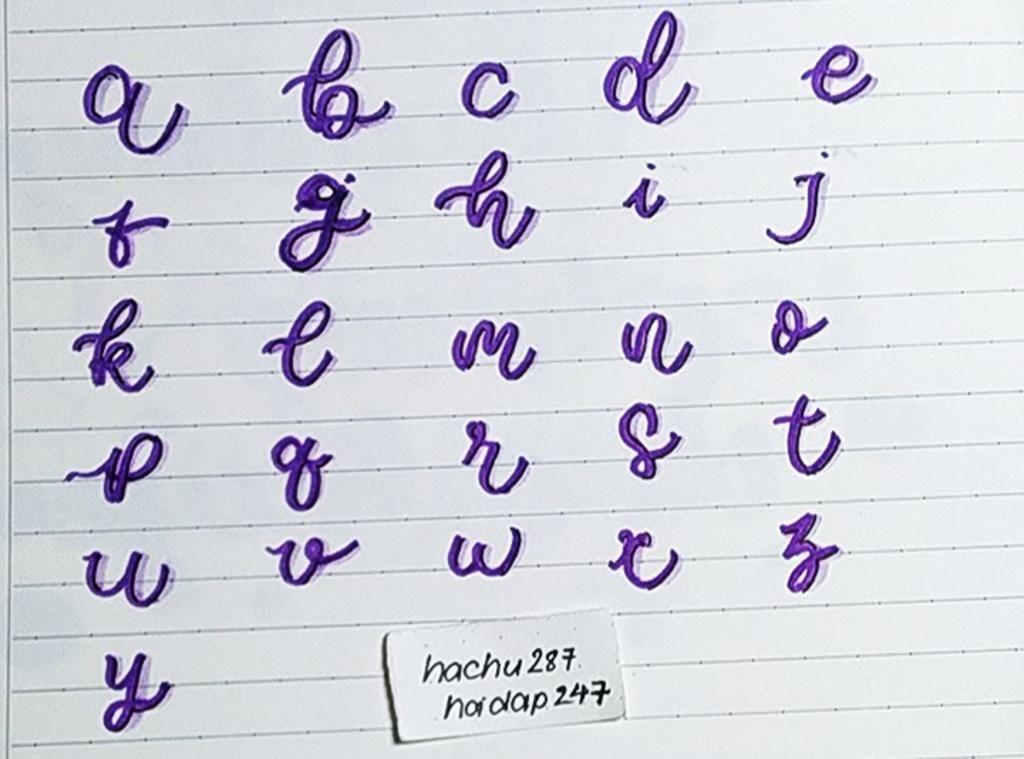 a b c d e
f g h i j
k l m n o
p q r s t
u v w x z
y
hachu287
hoidap247